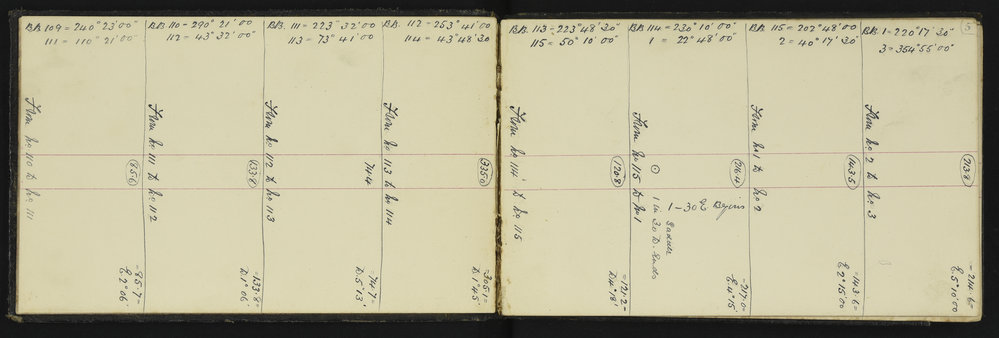 B.B. 109 = 240° 23' 00"
111 = 110° 21' 00"
From No 110 to No 111
85.6
= 85.7 =
E. 2° 06'
B.B. 110 = 290° 21' 00
112 = 43° 32' 00"
From No 111 to No 112
133.8
= 133.8 =
D. 1° 06'
B.B. 111 = 223° 32' 00
113 = 73° 41' 00
From No 112 to No 113
74.4
= 74.7 =
D. 5° 13'
B.B. 112 = 253° 41' 00
114 = 43° 48' 30
From No 113 to No 114
= 305.1 =
D. 1° 45'
B.B. 113 = 223° 48' 30
115 = 50° 10' 00"
From No 114 to No 115
120.8
= 121.2 =
D. 4° 18'
B.B. 114 = 230° 10' 00"
1 = 22° 48' 00"
From No 115 to No 1
1 – 30 E Begins
1 in 30 D. Ends
216.4
= 217.0 =
E. 4° 15'
B.B. 115 = 202° 48' 00
2 = 40° 17' 30"
From No 1 to No 2
143.5
= 143.6 =
E. 2° 15' 00
B.B. 1 = 220° 17' 30"
3 = 354° 55' 00"
5
From No 2 to No 3
213.8
= 214.6 =
E. 5° 10' 00